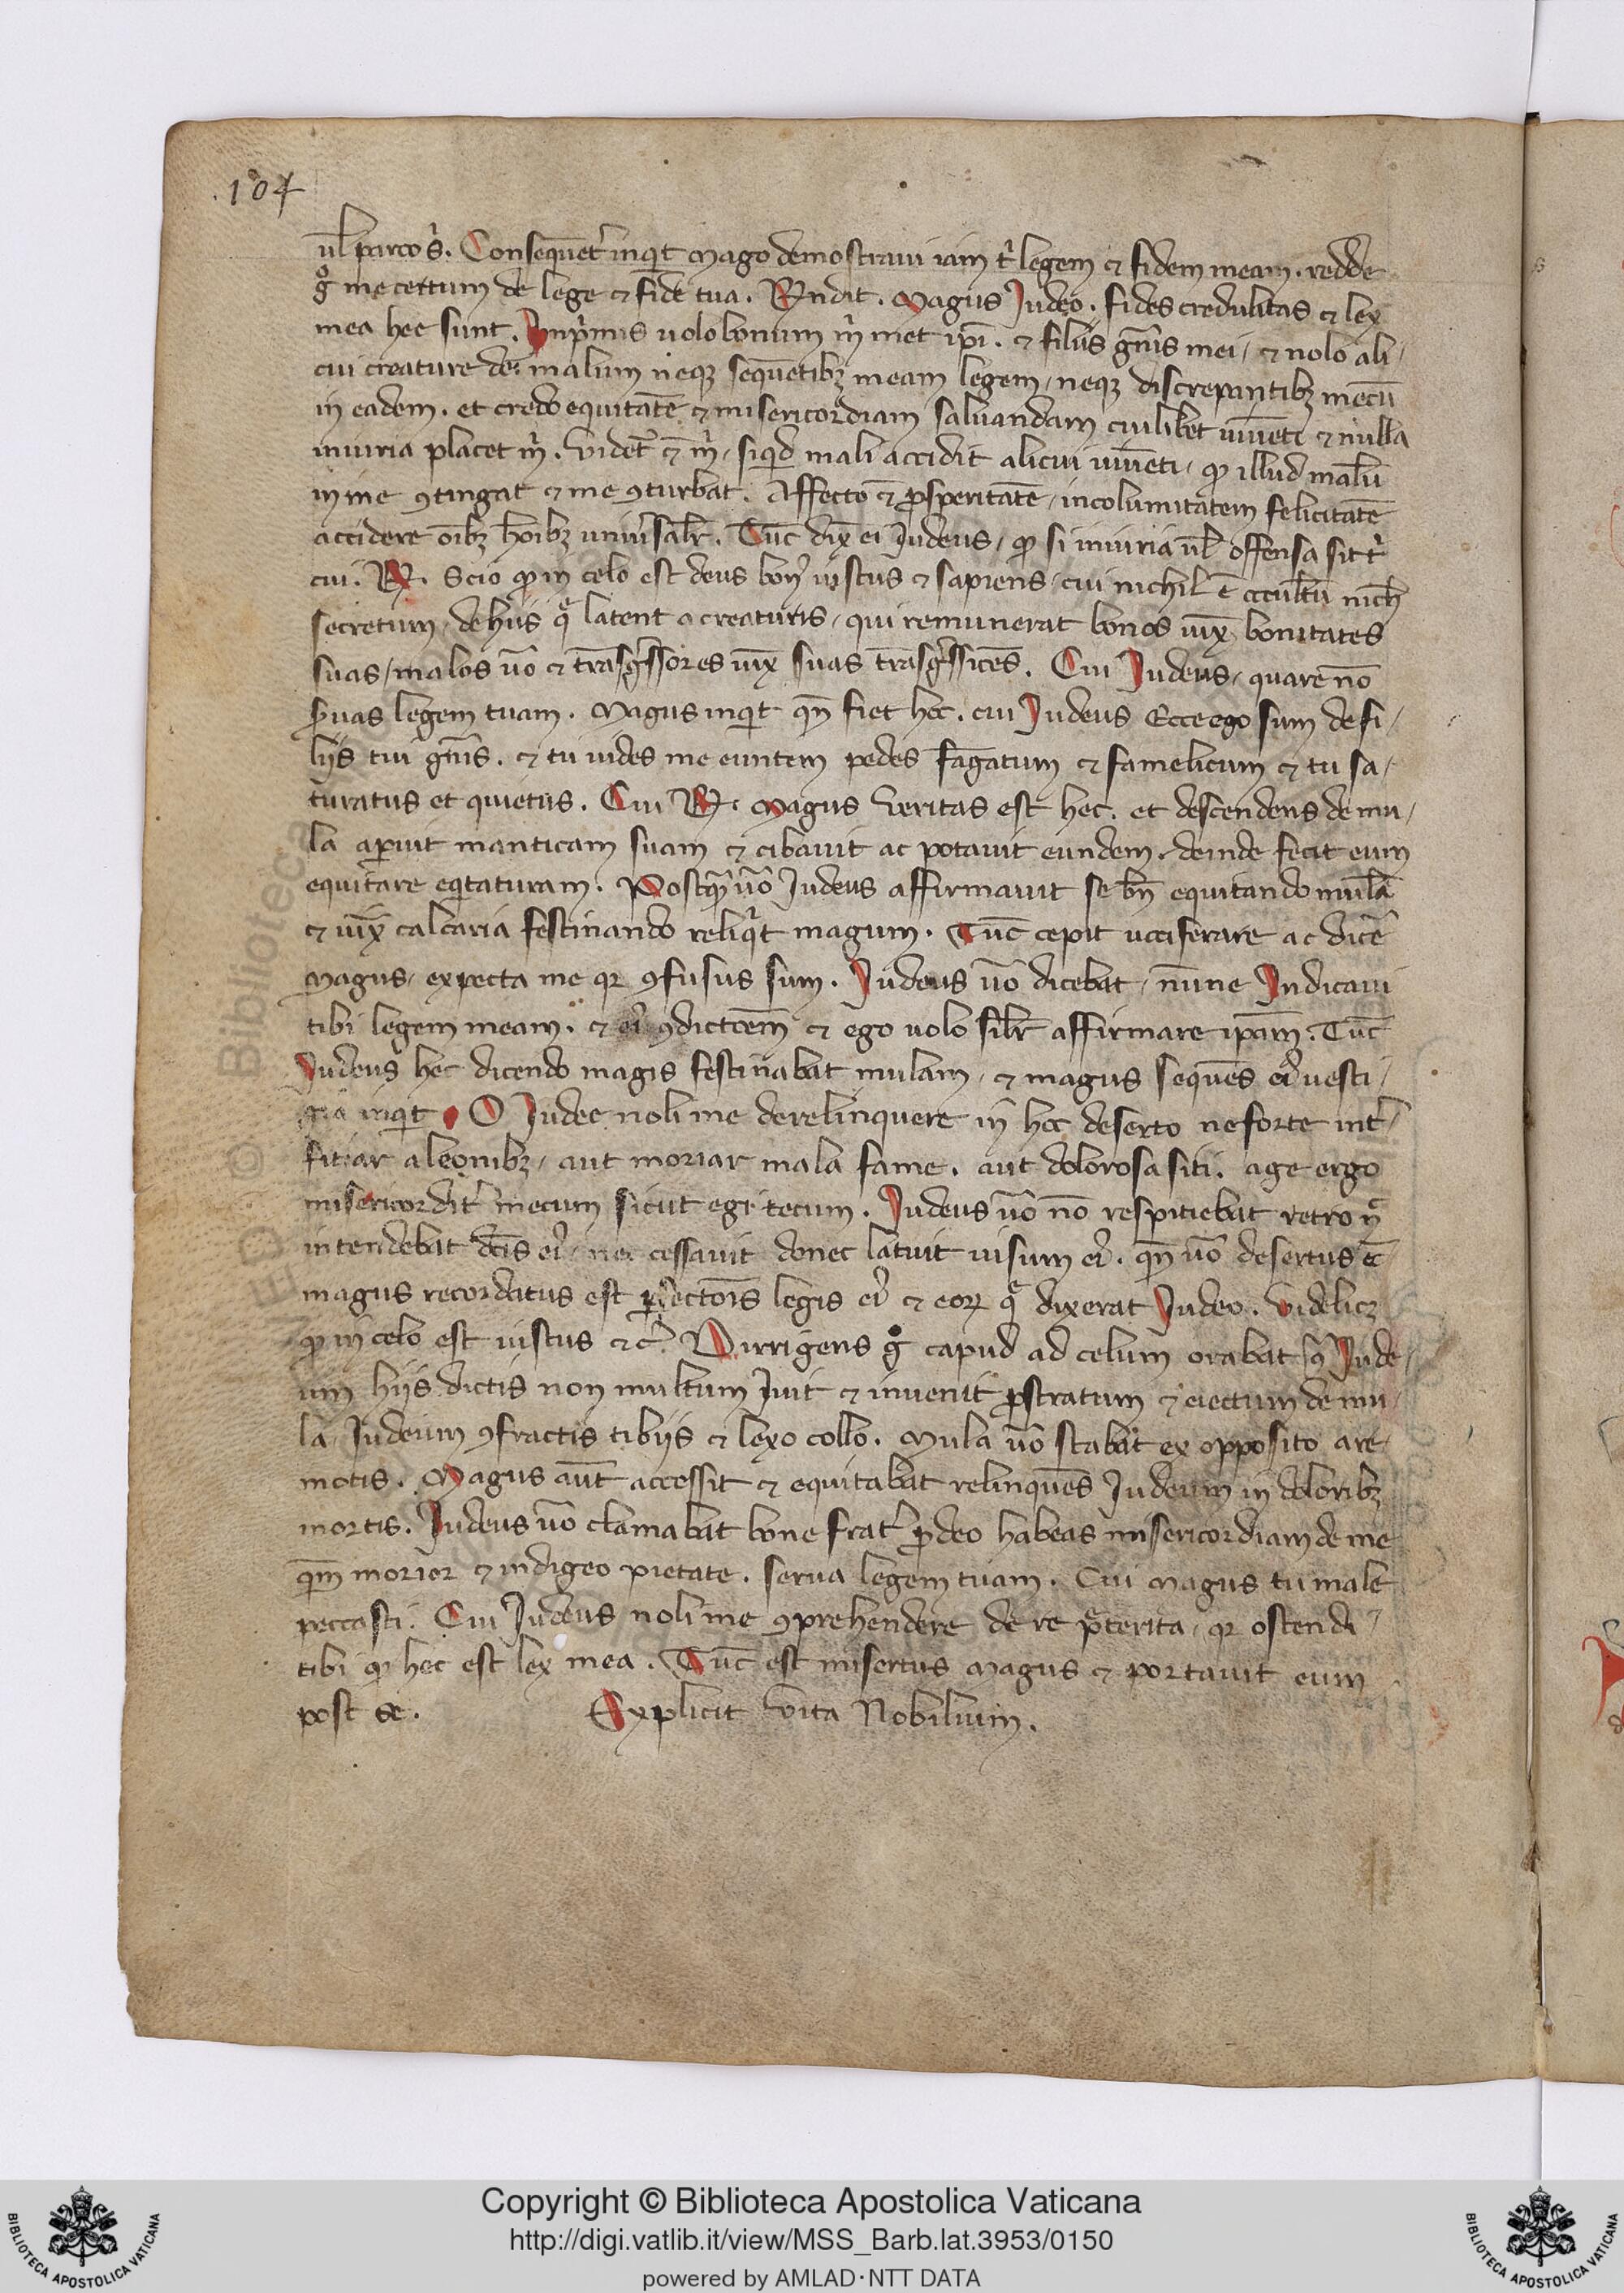 .104
ul̄ parco s̉. Consequent̉ inqit Mago demostraui iam t̉ legem et fidem meam. redde
g̊ me certum de lege et fide tua. Rn̄dit. Magus Judeo. fides credulitas et lex
mea hec sunt. Inp̉mis uolo bonum m̉ met ip̄i. et filiis gn̄is mei / et nolo ali /
cui creature dei malum neqʒ sequētibʒ meam legem / neqʒ discrepantibʒ mecū
in eadem. et credo equitatē et misericordiam saluandam cuilibet uiuēti et nulla
iniuria placet m̉. Videt̉ et̄ m̉ / siqid mali accidit alicui uiuēti / ꝙ illud malū
in me ꝯtingat et me ꝯturbat. Affecto et̄ ꝓsperitatē / incolumitatem felicitatē
accidere oībʒ hoībʒ uniu̓salr̄. Tūc dix̄ ei Judeus / ꝙ si iniuria ul̄ offensa sit t̉
cui. R̄. Scio ꝙ in celo est deus bonꝰ iustus et sapiens / cui nichil ē occultū nich̄
secretum / de hiis q̄ latent a creaturis / qui remunerat bonos iux̄ bonitates
suas / malos uō et trāsg̉ssores iux̄ suas trāsg̉ssiōes. Cui Judeus / quare nō
ẜuas legem tuam. Magus inqit qn̄ fiet hec. cui Judeus Ecce ego sum de fi /
liis tui gn̄is. et tu uides me euntem pedes fagatum et famelicum et tu sa /
turatus et quietus. Cui R̄. Magus Veritas est hec. et descendens de mu /
la aperuit manticam suam et cibauit ac potauit eundem. deinde fecit eum
equitare eqitaturam. Postqͣ uō Judeus affirmauit se bn̄ equitando mulā
et iux̄ calcaria festinando reliqͥt magum. Tūc cepit uociferare ac dicē
Magus / expecta me qꝛ ꝯfusus sum. Judeus uō dicebat / nūne Indicaui
tibi legem meam. et eiꝰ ꝯdictōem et ego uolo silr̄ affirmare ipam̄. Tūc
Judeus hec dicendo magis festinabat mulam / et magus sequēs eiꝰ uesti /
gia inqit. O Judee noli me derelinquere in hoc deserto ne forte int̄ /
fitiar a leonibʒ / aut moriar mala fame. aut dolorosa siti. age ergo
misericordit̉ mecum sicut egi tecum. Judeus uō nō respitiebat retro nͨ
intendebat dc̄is eiꝰ / nec cessauit donec latuit uisum eiꝰ. qn̄ uō desertus ē
magus recordatus est ꝑfectōis legis eiꝰ et eoꝝ q̄ dixerat Judeo. Videlicʒ
ꝙ in celo est iustus etc̄. Dirrigens g̊ capud ad celum orabat ꝯͣ Jude /
um hiis dictis non multum Iuit et inuenit ꝓstratum et eiectum de mu /
la Judeum ꝯfractis tibiis et lexo collo. Mula uō stabat ex opposito a re /
motis. Magus aūt accessit et equitabat relinquēs Judeum in doloribʒ
mortis. Judeus uō clamabat bone frat̉ ꝓ deo habeas misericordiam de me
qm̄ morior et indigeo pietate. serua legem tuam. Cui Magus tu male
peccasti. Cui Judeus noli me ꝯprehendere de re p̄terita / qꝛ ostendi /
tibi qꝛ hec est lex mea. Tūc est misertus Magus et portauit eum
post se. Explicit Vita Nobilium.
Copyright © Biblioteca Apostolica Vaticana
http://digi.vatlib.it/view/MSS_Barb.lat.3953/0150
powered by AMLAD·NTT DATA
BIBLIOTECA APOSTOLICA VATICANA
BIBLIOTECA APOSTOLICA VATICANA